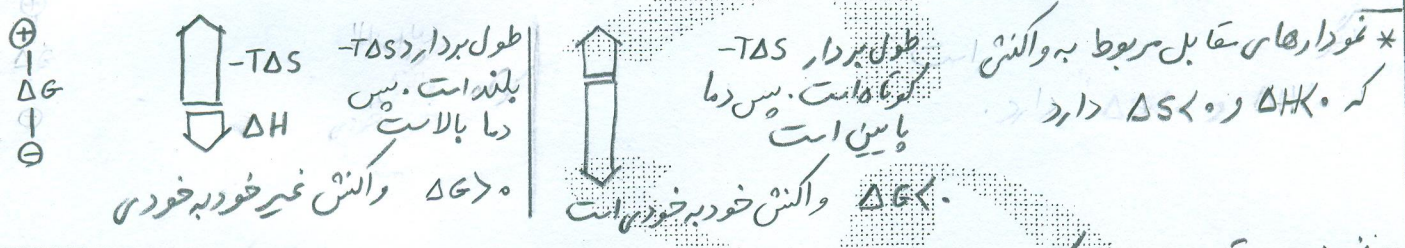 * نمودارهای مقابل مربوط به واکنشی
که ΔH<۰ و ΔS<۰ دارد
طول بردار -TΔS
کوتاه است. پس دما
پایین است
ΔG<۰ واکنش خودبه‌خودی است
طول بردار -TΔS
بلند است. پس
دما بالاست
-TΔS
ΔH
ΔG>۰ واکنش غیر خودبه‌خودی
+
ΔG
-